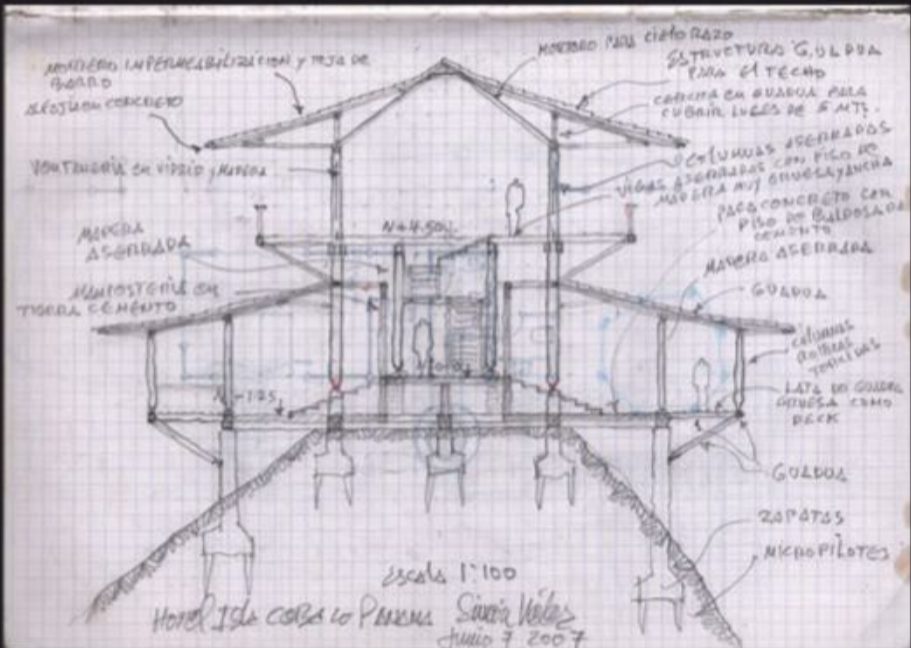 MORTERO IMPERMEABILIZACION y TEJA DE
BARRO
CONCRETO
VENTANERIA EN VIDRIO y MADERA
MADERA
ASERRADA
MAMPOSTERIA EN
TIERRA CEMENTO
MORTERO PARA CIELO RAZO
ESTRUCTURA GUADUA
PARA El TECHO
CERCHA EN GUADUA PARA
CUBRIR LUCES DE 5 MTS.
COLUMNAS ASERRADAS
VIGAS ASERRADAS CON PISO DE
MADERA MUY GRUESA y ANCHA
CONCRETO CON
PISO DE BALDOSA DE
CEMENTO
MADERA ASERRADA
GUADUA
COLUMNAS
ROLLIZAS
LATA DE GUADUA
GRUESA COMO
DECK
GUADUA
ZAPATAS
MICROPILOTES
N+4.50
N-1.25
escala 1:100
HOTEL ISLA PANAMA Simón Vélez
Junio 7 2007